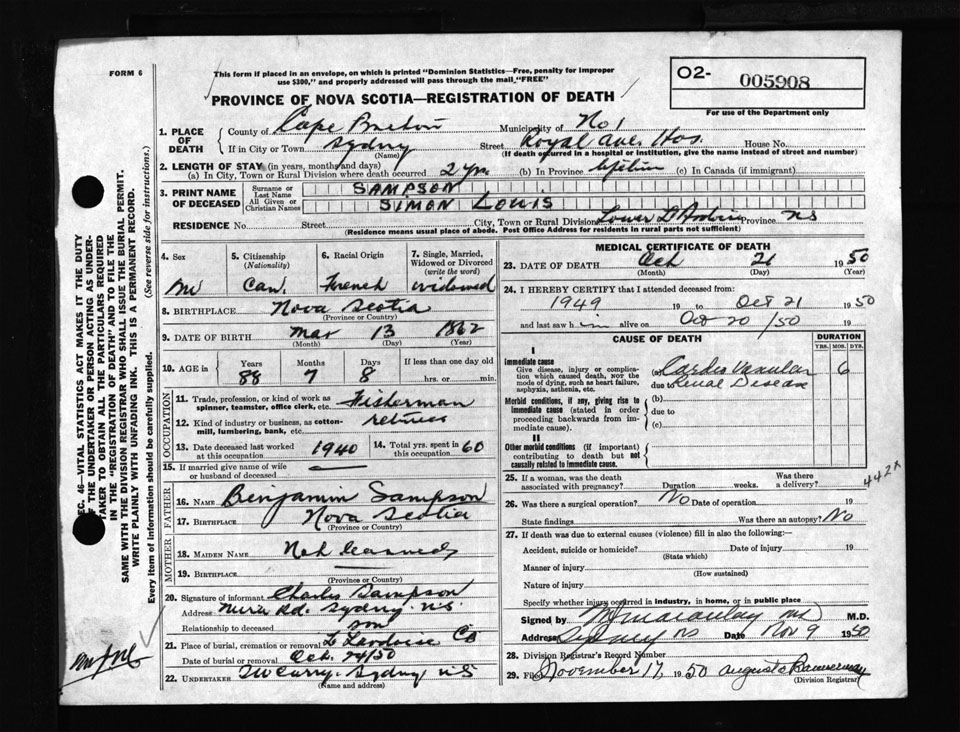 FORM 6
This form if placed in an envelope, on which is printed "Dominion Statistics—Free, penalty for improper
use $300," and properly addressed will pass through the mail "FREE"
O2- 005908
For use of the Department only
PROVINCE OF NOVA SCOTIA—REGISTRATION OF DEATH
1. PLACE OF DEATH
County of Cape Breton Municipality of No 1
If in City or Town Sydney Street Royal Ave. Hos. House No.
(Name) (If death occurred in a hospital or institution, give the name instead of street and number)
2. LENGTH OF STAY (in years, months and days)
(a) In City, Town or Rural Division where death occurred 2 yrs (b) In Province Lifetime (c) In Canada (if immigrant)
3. PRINT NAME OF DECEASED
Surname or Last Name SAMPSON
All Given or Christian Names SIMON LOUIS
RESIDENCE No. Street City, Town or Rural Division Lower Province NS
(Residence means usual place of abode. Post Office Address for residents in rural parts not sufficient)
4. Sex
M
5. Citizenship (Nationality)
Can.
6. Racial Origin
French
7. Single, Married, Widowed or Divorced (write the word)
widowed
8. BIRTHPLACE Nova Scotia
(Province or Country)
9. DATE OF BIRTH Mar 13 1862
(Month) (Day) (Year)
10. AGE in Years Months Days If less than one day old
88 7 8 hrs. or min.
OCCUPATION
11. Trade, profession or kind of work as spinner, teamster, office clerk, etc. Fisherman
12. Kind of industry or business, as cotton-mill, lumbering, bank, etc. retired
13. Date deceased last worked at this occupation 1940
14. Total yrs. spent in this occupation 60
15. If married give name of wife or husband of deceased
FATHER
16. NAME Benjamin Sampson
17. BIRTHPLACE Nova Scotia
(Province or Country)
MOTHER
18. MAIDEN NAME Not learned
19. BIRTHPLACE
(Province or Country)
20. Signature of informant Charles Sampson
Address Mira Rd. Sydney N.S.
Relationship to deceased son
21. Place of burial, cremation or removal L'Ardoise CB
Date of burial or removal Oct. 24/50
22. UNDERTAKER Sydney NS
(Name and address)
MEDICAL CERTIFICATE OF DEATH
23. DATE OF DEATH Oct 21 1950
(Month) (Day) (Year)
24. I HEREBY CERTIFY that I attended deceased from:
1949 19 to Oct 21 1950
and last saw him alive on Oct 20/50 19
CAUSE OF DEATH
DURATION
YRS. MOS. DYS.
I
Immediate cause
Give disease, injury or complication which caused death, NOT the mode of dying, such as heart failure, asphyxia, asthenia, etc.
(a) Cardio Vascular 6
due to Renal Disease
Morbid conditions, if any, giving rise to immediate cause (stated in order proceeding backwards from immediate cause).
(b)
due to
(c)
II
Other morbid conditions (if important) contributing to death but not causally related to immediate cause.
442x
25. If a woman, was the death associated with pregnancy? Duration weeks. Was there a delivery?
26. Was there a surgical operation? No Date of operation 19
State findings Was there an autopsy? No
27. If death was due to external causes (violence) fill in also the following:
Accident, suicide or homicide? Date of injury 19
(State which)
Manner of injury
(How sustained)
Nature of injury
Specify whether injury occurred in industry, in home, or in public place
Signed by Macaulay M.D.
Address Sydney NS Date Nov 9 1950
28. Division Registrar's Record Number
29. Filed November 17, 1950 Bannerman
(Division Registrar)
SEC. 46—VITAL STATISTICS ACT MAKES IT THE DUTY
OF THE UNDERTAKER OR PERSON ACTING AS UNDER-
TAKER TO OBTAIN ALL THE PARTICULARS REQUIRED
IN THE "REGISTRATION OF DEATH" AND TO FILE THE
SAME WITH THE DIVISION REGISTRAR WHO SHALL ISSUE THE BURIAL PERMIT.
WRITE PLAINLY WITH UNFADING INK. THIS IS A PERMANENT RECORD.
Every item of information should be carefully supplied. (See reverse side for instructions.)